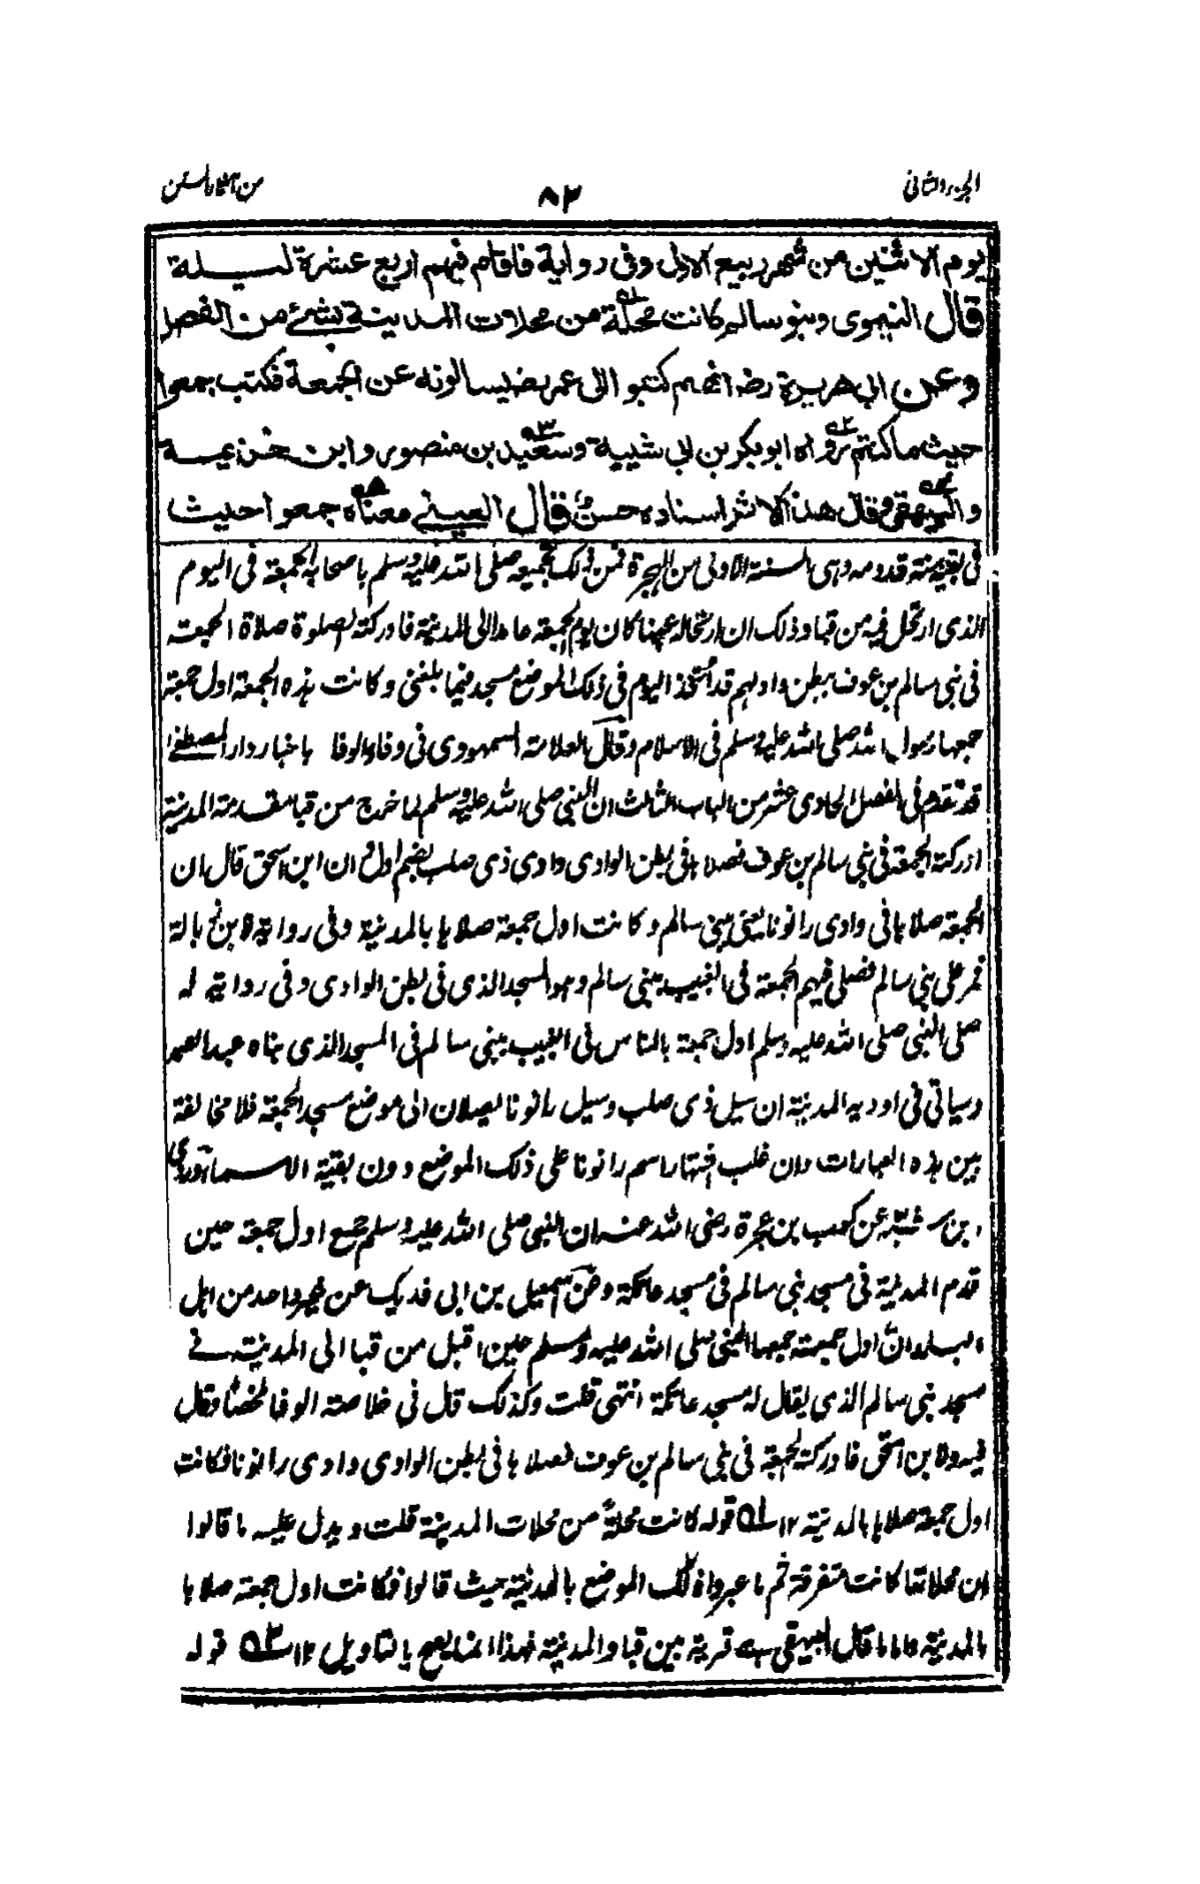 الجزء الثاني ٨٢ من آثار السنن
يوم الاثنين من شهر ربيع الاول وفى رواية فاقام فيهم اربع عشرة ليلة
قال النيموى وبنو سالم كانت محلة من محلات المدينة بشئ من الفصل
وعن ابى هريرة رضـ انهم كتبوا الى عمر رضـ يسالونه عن الجمعة فكتب جمعوا
حيث ما كنتم رواه ابو بكر بن ابى شيبة وسعيد بن منصور وابن خزيمة
والبيهقى وقال هذا الاثر اسناده حسن قال العينى معناه جمعوا حيث
فى بقية سنة قدومه وهى السنة الاولى من الهجرة فمن ذلك تجميعه صلى الله عليه وسلم باصحابه الجمعة فى اليوم
الذى ارتحل فيه من قبا وذلك ان ارتحاله عنها كان يوم الجمعة عامدا الى المدينة فادركته الصلوة صلاة الجمعة
فى بنى سالم بن عوف ببطن واد لهم قد اتخذ اليوم فى ذلك الموضع مسجد فيما بلغنى وكانت هذه الجمعة اول جمعة
جمعها رسول الله صلى الله عليه وسلم فى الاسلام وقال العلامة السمهودى فى وفاء الوفا باخبار دار المصطفى
قد تقدم فى الفصل الحادى عشر من الباب الثالث ان النبى صلى الله عليه وسلم لما خرج من قبا مقدمه المدينة
ادركته الجمعة فى بنى سالم بن عوف فصلاها فى بطن الوادى وادى ذى صلب بضم اوله ان ابن اسحق قال ان
الجمعة صلاها فى وادى رانونا يعنى ببنى سالم وكانت اول جمعة صلاها بالمدينة وفى رواية لابن زبالة
فمر على بنى سالم فصلى فيهم الجمعة فى الغبيب ببنى سالم وهو المسجد الذى فى بطن الوادى وفى رواية له
صلى النبى صلى الله عليه وسلم اول جمعة بالناس فى الغبيب ببنى سالم فى المسجد الذى بناه عبد الصمد
وسياتى فى اودية المدينة ان سيل ذى صلب وسيل رانونا يصلان الى موضع مسجد الجمعة فلا مخالفة
بين هذه العبارات وان غلب اشتهار اسم رانونا على ذلك الموضع دون بقية الاسماء وروى
ابن شبة عن كعب بن عجرة رضى الله عنه ان النبى صلى الله عليه وسلم جمع اول جمعة حين
قدم المدينة فى مسجد بنى سالم فى مسجد عاتكة وعن اسمعيل بن ابى فديك عن غير واحد من اهل
البلد ان اول جمعة جمعها النبى صلى الله عليه وسلم حين اقبل من قبا الى المدينة فى
مسجد بنى سالم الذى يقال له مسجد عاتكة انتهى قلت وكذلك قال فى خلاصة الوفا ملخصا وقال
فيه ولابن اسحق فادركته الجمعة فى بنى سالم بن عوف فصلاها فى بطن الوادى وادى رانونا فكانت
اول جمعة صلاها بالمدينة ١٢ قوله كانت محلة من محلات المدينة قلت ويدل عليه ما قالوا
ان محلاتها كانت متفرقة ثم ما عبروا ذلك الموضع بالمدينة حيث قالوا فكانت اول جمعة صلاها
بالمدينة واما ما قال البيهقى هى قرية بين قبا والمدينة فهذا انما يصح بالتاويل ١٢ قوله